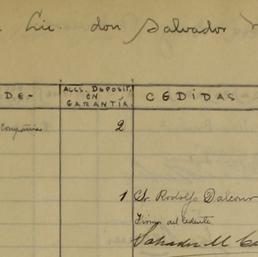 Lic. don Salvador
DE-
ACCS. DEPOSIT.
EN
GARANTÍA
CEDIDAS
Compañia
2
1 Sr. Rodolfo
Firma del cedente
Salvador M.